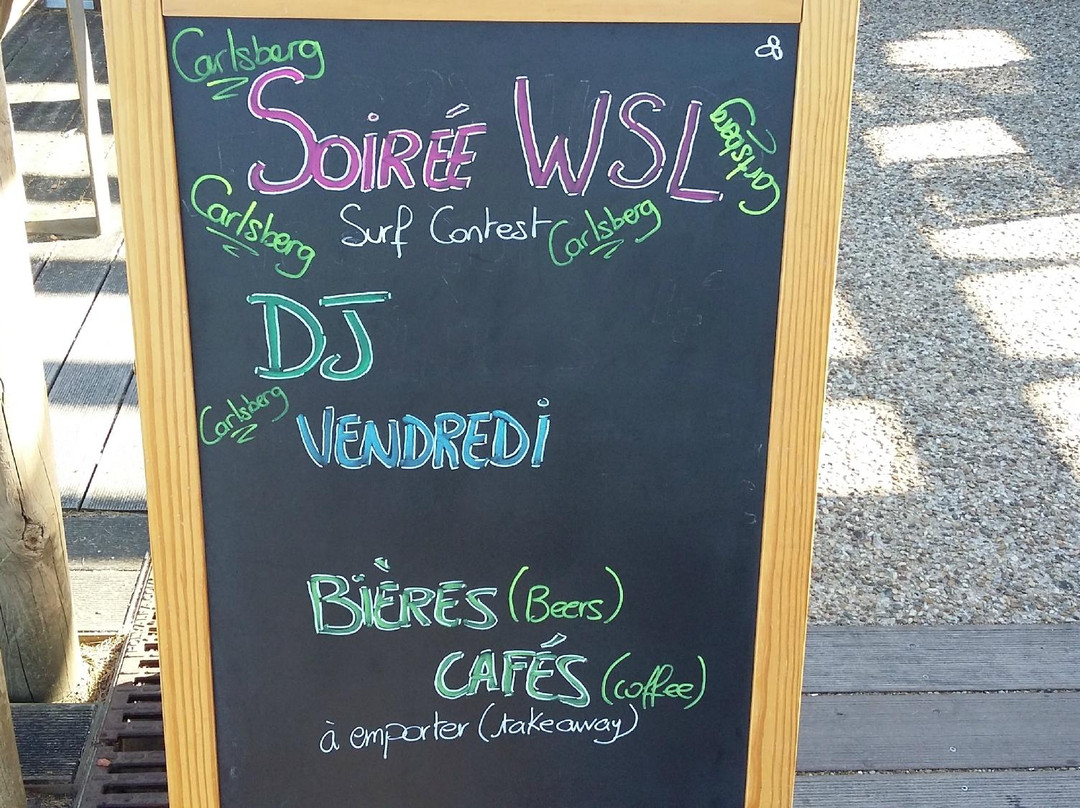 Carlsberg
SOIRÉE WSL
Carlsberg
Carlsberg
Surf Contest
Carlsberg
DJ
Carlsberg
VENDREDi
BIÈRES (Beers)
CAFÉS (coffee)
à emporter (takeaway)